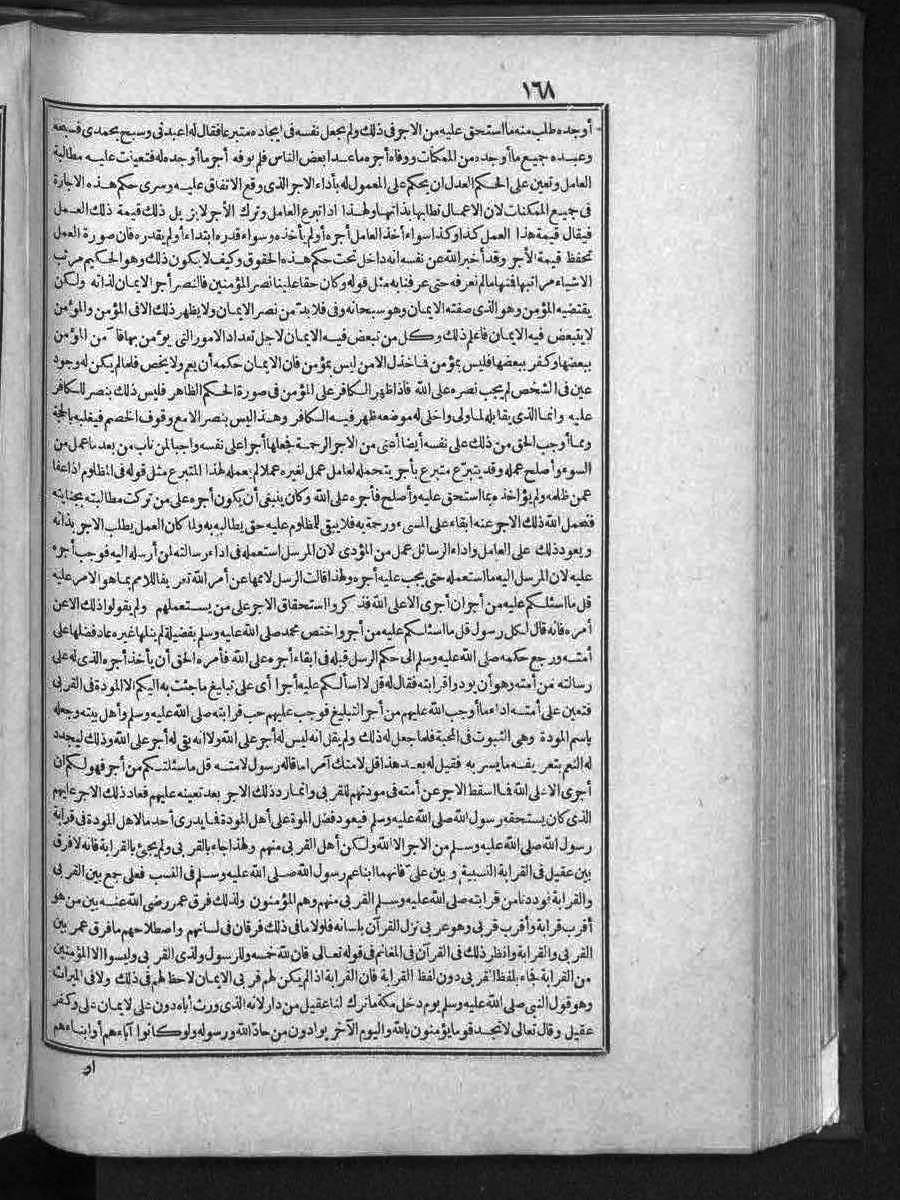 ١٦٨
أوجده طلب منه ما استحق عليه من الاجر في ذلك ولم يجعل نفسه في ايجاده متبرعا فقال له اعبدني وسبح بحمدي فسبحه
وعبده جميع ما أوجده من الممكنات ووفاه أجره ماعدا بعض الناس فلم يوفه أجر ما أوجده له فتعينت عليه مطالبة
العامل وتعين على الحكم العدل ان يحكم على المعمول له بأداء الاجر الذي وقع الاتفاق عليه وسرى حكم هذه الاجارة
في جميع الممكنات لان الاعمال تطلبها بذاتها ولهذا اذا تبرع العامل وترك الأجر لا يزيل ذلك قيمة ذلك العمل
فيقال قيمة هذا العمل كذا وكذا سواء أخذ العامل أجره أو لم يأخذه وسواء قدره ابتداء أو لم يقدره فان صورة العمل
تحفظ قيمة الأجر وقد أخبر الله عن نفسه انه داخل تحت حكم هذه الحقوق وكيف لا يكون ذلك وهو الحكيم مرتب
الاشياء مراتبها فمنها ما لم نعرفه حتى عرفنا به مثل قوله وكان حقا علينا نصر المؤمنين فالنصر أجر الايمان لذاته ولكن
يقتضيه المؤمن وهو الذي صفته الايمان وهو سبحانه وفي فلا بد من نصر الايمان ولا يظهر ذلك الا في المؤمن والمؤمن
لا يتبعض فيه الايمان فاعلم ذلك وكل من تبعض فيه الايمان لاجل تعداد الامور التي يؤمن بها فآمن المؤمن
ببعضها وكفر ببعضها فليس بمؤمن فما خذل الا من ليس بمؤمن فان الايمان حكمه أن يعم ولا يخص فلما لم يكن له وجود
عين في الشخص لم يجب نصره على الله فاذا ظهر الكافر على المؤمن في صورة الحكم الظاهر فليس ذلك بنصر للكافر
عليه وانما الذي يقابله لما ولى وأخلى له موضعه ظهر فيه الكافر وهذا ليس بنصر الا مع وقوف الخصم فيغلبه بالحجة
ومما أوجب الحق من ذلك على نفسه أيضا أعني من الاجر الرحمة فجعلها أجرا على نفسه واجبا لمن تاب من بعد ما عمل من
السوء وأصلح عمله وقد يتبرع متبرع بأجر يتحمله لعامل عمل لغيره عملا لم يعمله لهذا المتبرع مثل قوله في المظلوم اذا عفا
عمن ظلمه ولم يؤاخذه بما استحق عليه وأصلح فأجره على الله وكان ينبغي أن يكون أجره على من تركت مطالبته بجنايته
فتحمل الله ذلك الاجر عنه ابقاء على المسيء ورحمة به فلا يبقى للمظلوم عليه حق يطالبه به ولما كان العمل يطلب الاجر بذاته
ويعود ذلك على العامل وأداء الرسائل عمل من المؤدي لان المرسل استعمله في أداء رسالته لمن أرسله اليه فوجب أجره
عليه لان المرسل اليه ما استعمله حتى يجب عليه أجره ولهذا قالت الرسل لاممها عن أمر الله تعريفا للامم بما هو الامر عليه
قل ما اسئلكم عليه من أجر ان أجرى الا على الله فذكروا استحقاق الاجر على من يستعملهم ولم يقولوا ذلك الا عن
أمره فانه قال لكل رسول قل ما اسئلكم عليه من أجر واختص محمد صلى الله عليه وسلم بفضيلة لم ينلها غيره عاد فضلها على
أمته ورجع حكمه صلى الله عليه وسلم الى حكم الرسل قبله في ابقاء أجره على الله فأمره الحق أن يأخذ أجره الذي له على
رسالته من أمته وهو أن يودوا قرابته فقال له قل لا اسألكم عليه أجرا أي على تبليغ ما جئت به اليكم الا المودة في القربى
فتعين على أمته أداء ما أوجب الله عليهم من أجر التبليغ فوجب عليهم حب قرابته صلى الله عليه وسلم وأهل بيته وجعله
باسم المودة وهي الثبوت في المحبة فلما جعل له ذلك ولم يقل انه ليس له أجر على الله ولا انه بقى له أجر على الله وذلك ليجدد
له النعم بتعريفه ما يسر به فقيل له بعد هذا قل لامتك آمرا ما قاله رسول لامته قل ما سئلتكم من أجر فهو لكم ان
أجرى الا على الله فما اسقط الاجر عن أمته في مودتهم للقربى وانما رد ذلك الاجر بعد تعينه عليهم فعاد ذلك الاجر عليهم
الذي كان يستحقه رسول الله صلى الله عليه وسلم فيعود فضل المودة على أهل المودة فما يدري أحد ما لاهل المودة في قرابة
رسول الله صلى الله عليه وسلم من الاجر الا الله ولكن أهل القربى منهم ولهذا جاء بالقربى ولم يجيء بالقرابة فانه لا فرق
بين عقيل في القرابة النسبية وبين علي فانهما ابنا عم رسول الله صلى الله عليه وسلم في النسب فعلي جمع بين القربى
والقرابة فوددنا من قرابته صلى الله عليه وسلم القربى منهم وهم المؤمنون ولذلك فرق عمر رضي الله عنه بين من هو
أقرب قرابة وأقرب قربى وهو عربي نزل القرآن بلسانه فلولا ما في ذلك فرقان في لسانهم واصطلاحهم ما فرق عمر بين
القربى والقرابة وانظر ذلك في القرآن في المغانم في قوله تعالى فان لله خمسه وللرسول ولذي القربى وليسوا الا المؤمنين
من القرابة فجاء بلفظ القربى دون لفظ القرابة فان القرابة اذا لم يكن لهم قربى الايمان لاحظ لهم في ذلك ولا في الميراث
وهو قول النبي صلى الله عليه وسلم يوم دخل مكة ما ترك لنا عقيل من دار لانه الذي ورث أباه دون علي لايمان علي وكفر
عقيل وقال تعالى لا تجد قوما يؤمنون بالله واليوم الآخر يوادون من حاد الله ورسوله ولو كانوا آباءهم أو ابناءهم
او